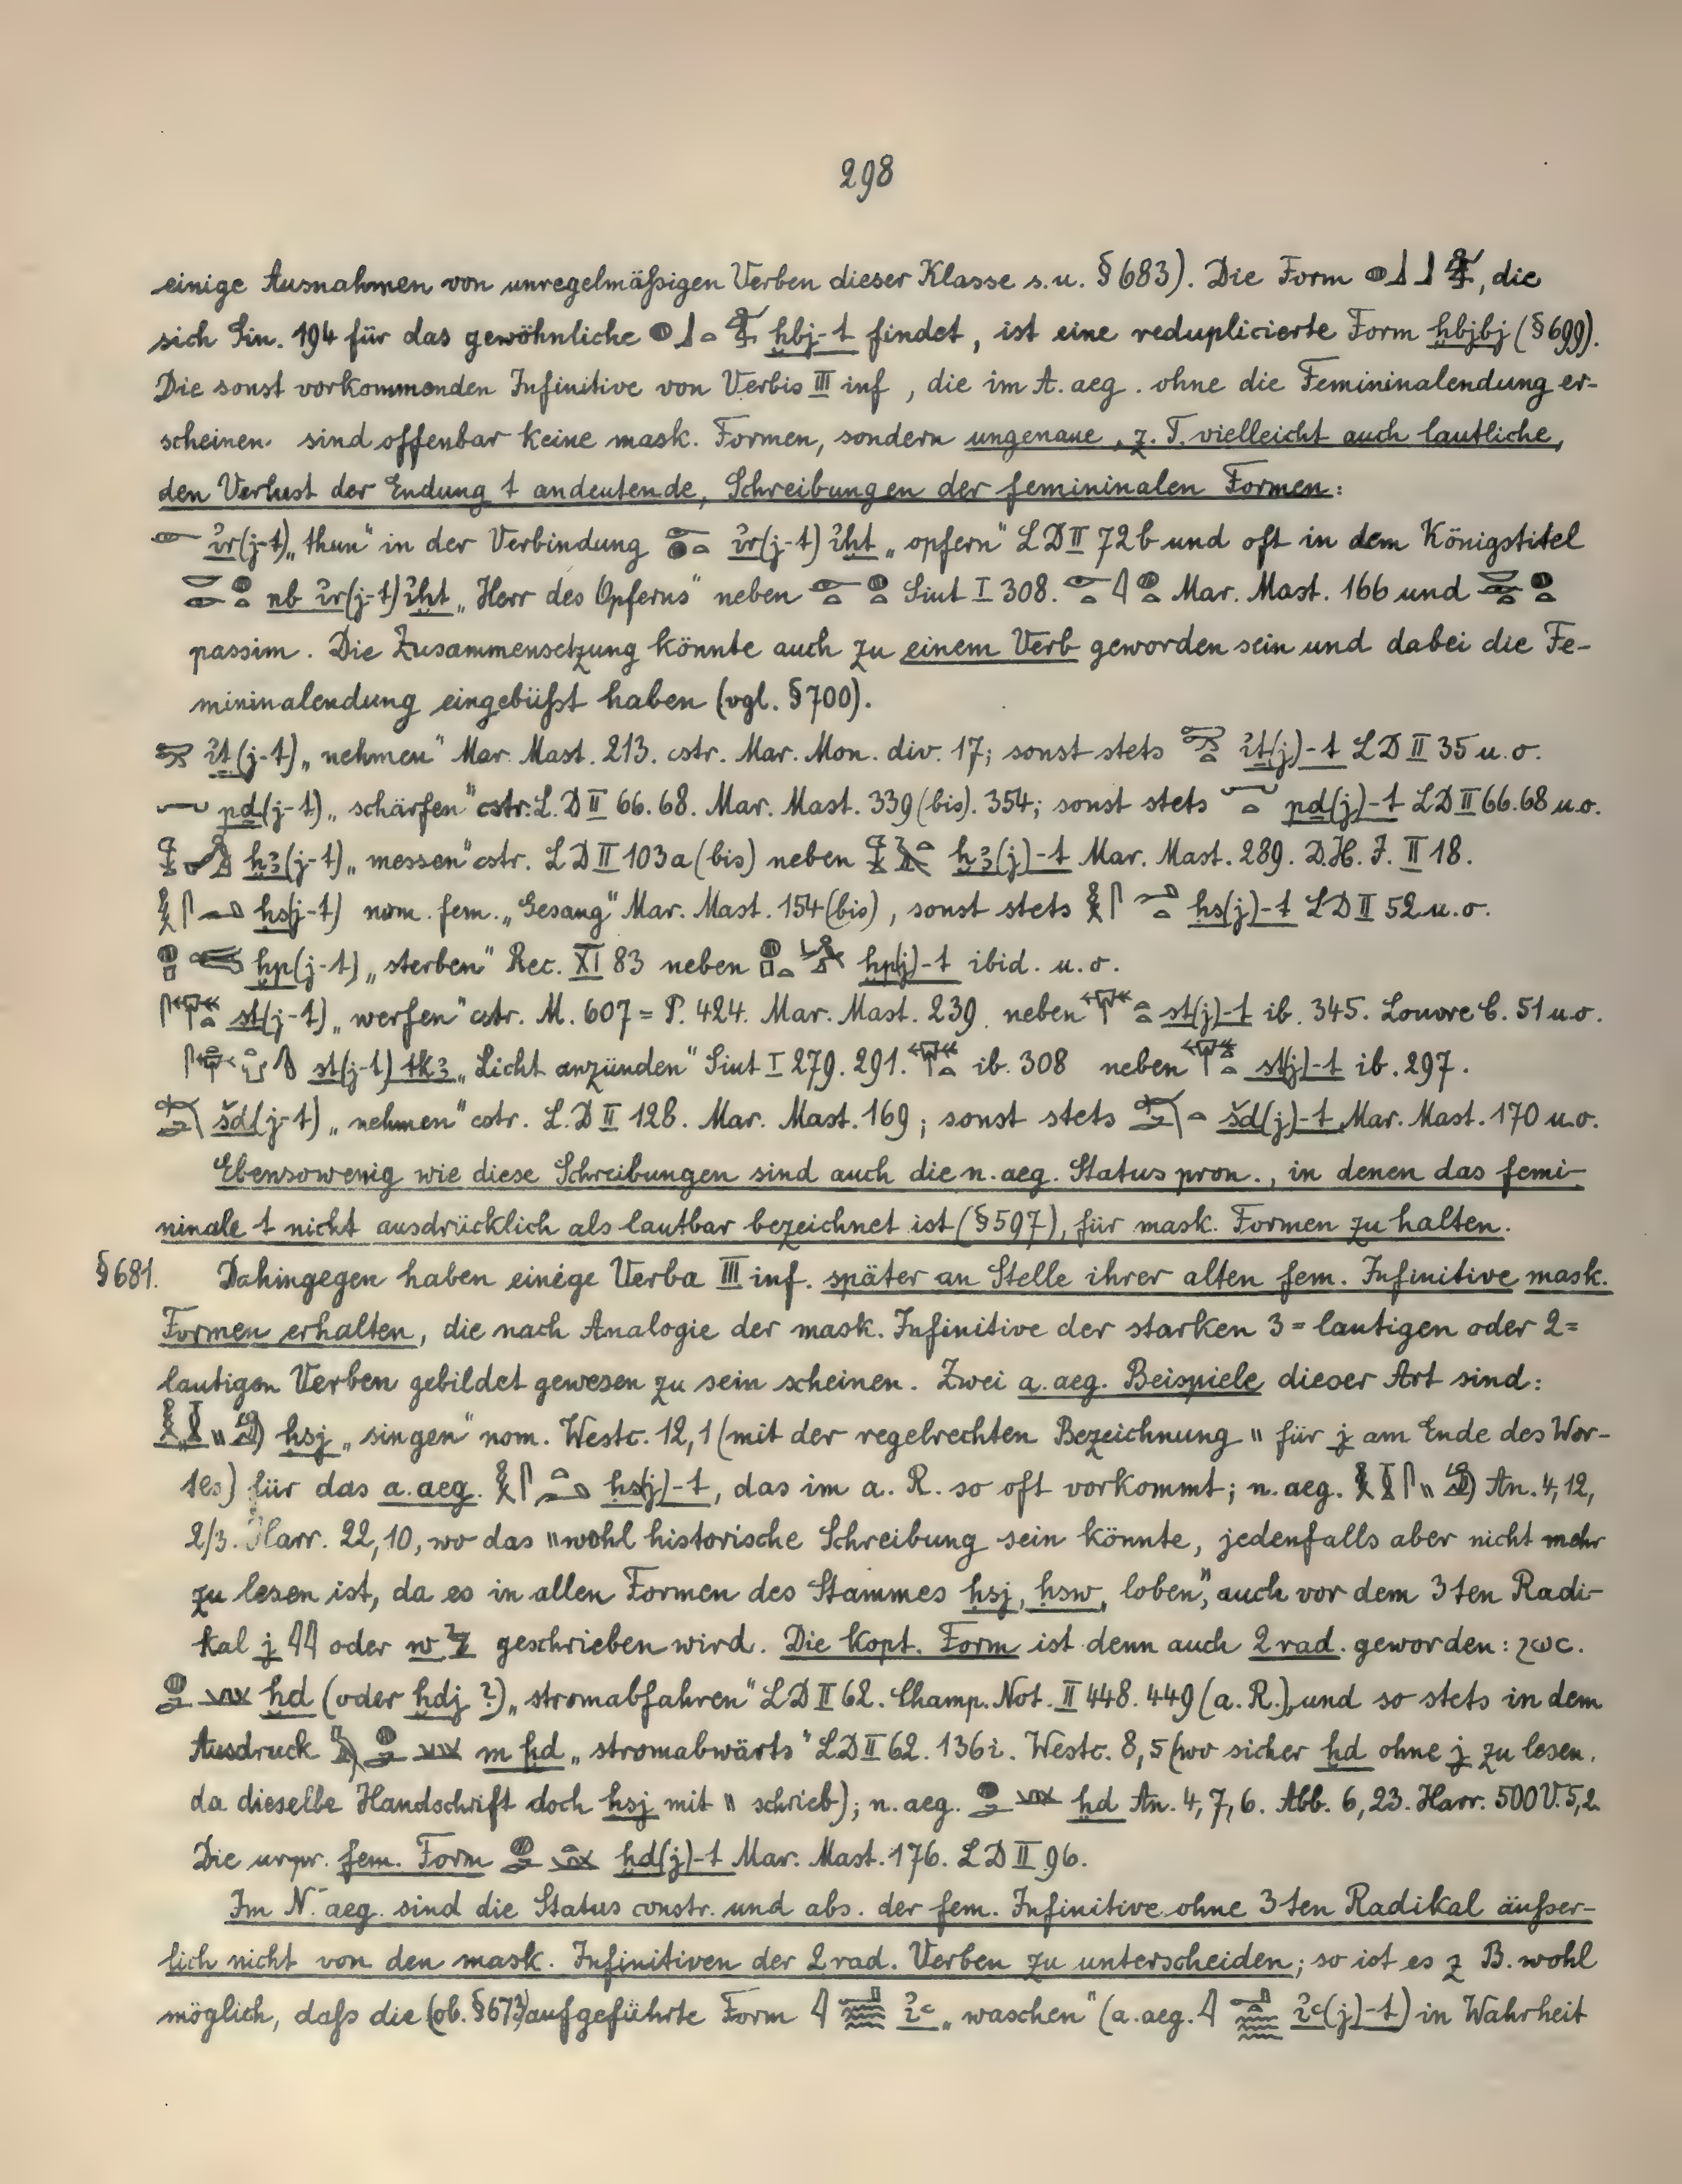 298
einige Ausnahmen von unregelmäßigen Verben dieser Klasse s. u. § 683). Die Form 𓐍𓃀𓃀, die
sich Sin. 194 für das gewöhnliche 𓐍𓃀𓏏 ḫbj-t findet, ist eine reduplicierte Form ḫbjbj (§ 699).
Die sonst vorkommenden Infinitive von Verbis III inf, die im A. aeg. ohne die Femininalendung er-
scheinen sind offenbar keine mask. Formen, sondern ungenaue, z. T. vielleicht auch lautliche,
den Verlust der Endung t andeutende, Schreibungen der femininalen Formen:
𓁹 ỉr(j-t) „thun" in der Verbindung ỉr(j-t) ỉḫt „opfern" LD II 72b und oft in dem Königstitel
nb ỉr(j-t) ỉḫt „Herr des Opferns" neben Siut I 308. Mar. Mast. 166 und
passim. Die Zusammensetzung könnte auch zu einem Verb geworden sein und dabei die Fe-
mininalendung eingebüßt haben (vgl. § 700).
ỉṯ(j-t) „nehmen" Mar. Mast. 213. cstr. Mar. Mon. div. 17; sonst stets ỉṯ(j)-t LD II 35 u. o.
pd(j-t) „schärfen" cstr. L. D II 66. 68. Mar. Mast. 339 (bis). 354; sonst stets pd(j)-t LD II 66. 68 u. o.
ḫꜣ(j-t) „messen" cstr. LD II 103a (bis) neben ḫꜣ(j)-t Mar. Mast. 289. D. H. J. II 18.
ḥs(j-t) nom. fem. „Gesang" Mar. Mast. 154 (bis), sonst stets ḥs(j)-t LD II 52 u. o.
ḫp(j-t) „sterben" Rec. XI 83 neben ḫp(j)-t ibid. u. o.
st(j-t) „werfen" cstr. M. 607 = P. 424. Mar. Mast. 239. neben st(j)-t ib. 345. Louvre C. 51 u. o.
st(j-t) tkꜣ „Licht anzünden" Siut I 279. 291. ib. 308 neben st(j)-t ib. 297.
šd(j-t) „nehmen" cstr. L. D II 128. Mar. Mast. 169; sonst stets šd(j)-t Mar. Mast. 170 u. o.
Ebensowenig wie diese Schreibungen sind auch die n. aeg. Status pron., in denen das femi-
ninale t nicht ausdrücklich als lautbar bezeichnet ist (§ 597), für mask. Formen zu halten.
§ 681. Dahingegen haben einige Verba III inf. später an Stelle ihrer alten fem. Infinitive mask.
Formen erhalten, die nach Analogie der mask. Infinitive der starken 3 = lautigen oder 2 =
lautigen Verben gebildet gewesen zu sein scheinen. Zwei a. aeg. Beispiele dieser Art sind:
ḥsj „singen" nom. Westc. 12,1 (mit der regelrechten Bezeichnung 𓏭 für j am Ende des Wor-
tes) für das a. aeg. ḥs(j)-t, das im a. R. so oft vorkommt; n. aeg. An. 4, 12,
2/3. Harr. 22, 10, wo das 𓏭 wohl historische Schreibung sein könnte, jedenfalls aber nicht mehr
zu lesen ist, da es in allen Formen des Stammes ḥsj, ḥsw „loben", auch vor dem 3ten Radi-
kal j 𓇋𓇋 oder w geschrieben wird. Die kopt. Form ist denn auch 2 rad. geworden: ϩⲱⲥ.
ḫd (oder ḫdj ?) „stromabfahren" LD II 62. Champ. Not. II 448. 449 (a. R.) und so stets in dem
Ausdruck m ḫd „stromabwärts" LD II 62. 136i. Westc. 8, 5 (wo sicher ḫd ohne j zu lesen,
da dieselbe Handschrift doch ḥsj mit 𓏭 schrieb); n. aeg. ḫd An. 4, 7, 6. Abb. 6, 23. Harr. 500 V. 5, 2.
Die urspr. fem. Form ḫd(j)-t Mar. Mast. 176. LD II 96.
Im N. aeg. sind die Status constr. und abs. der fem. Infinitive ohne 3ten Radikal äußer-
lich nicht von den mask. Infinitiven der 2 rad. Verben zu unterscheiden; so ist es z B. wohl
möglich, daß die (ob. § 673) aufgeführte Form ỉꜥ „waschen" (a. aeg. ỉꜥ(j)-t) in Wahrheit